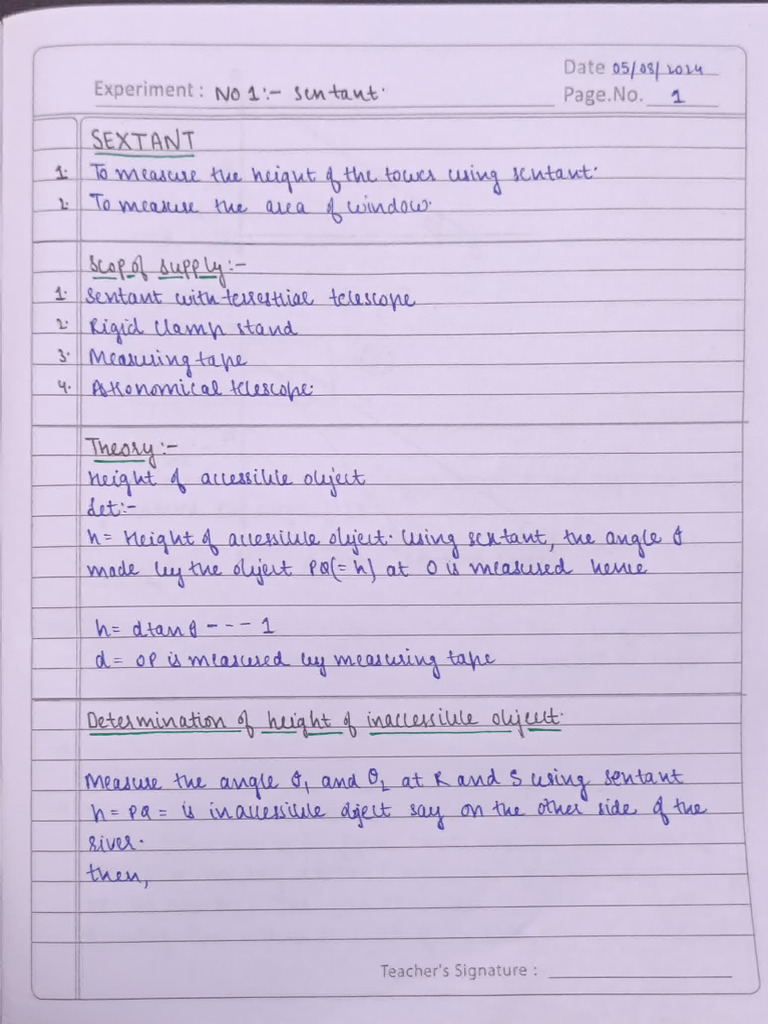 Date 05/08/2024
Experiment : NO 1:- Sextant.
Page.No. 1
SEXTANT
1. To measure the height of the tower using sextant.
2. To measure the area of window.
Scop of supply:-
1. Sextant with terrestrial telescope
2. Rigid Clamp stand
3. Measuring tape
4. Astronomical telescope.
Theory:-
Height of accessible object
Let:-
h= Height of accessible object. Using sextant, the angle θ
made by the object PQ(=h) at O is measured hence
h= dtanθ --- 1
d= OP is measured by measuring tape
Determination of height of inaccessible object.
Measure the angle θ₁ and θ₂ at R and S using sextant
h= PQ = is inaccessible object say on the other side of the
river.
then,
Teacher's Signature :